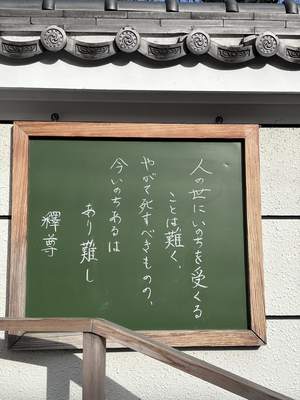 人の世にいのちを受くる
ことは難く、
やがて死すべきものの、
今いのちあるは
あり難し
釋尊